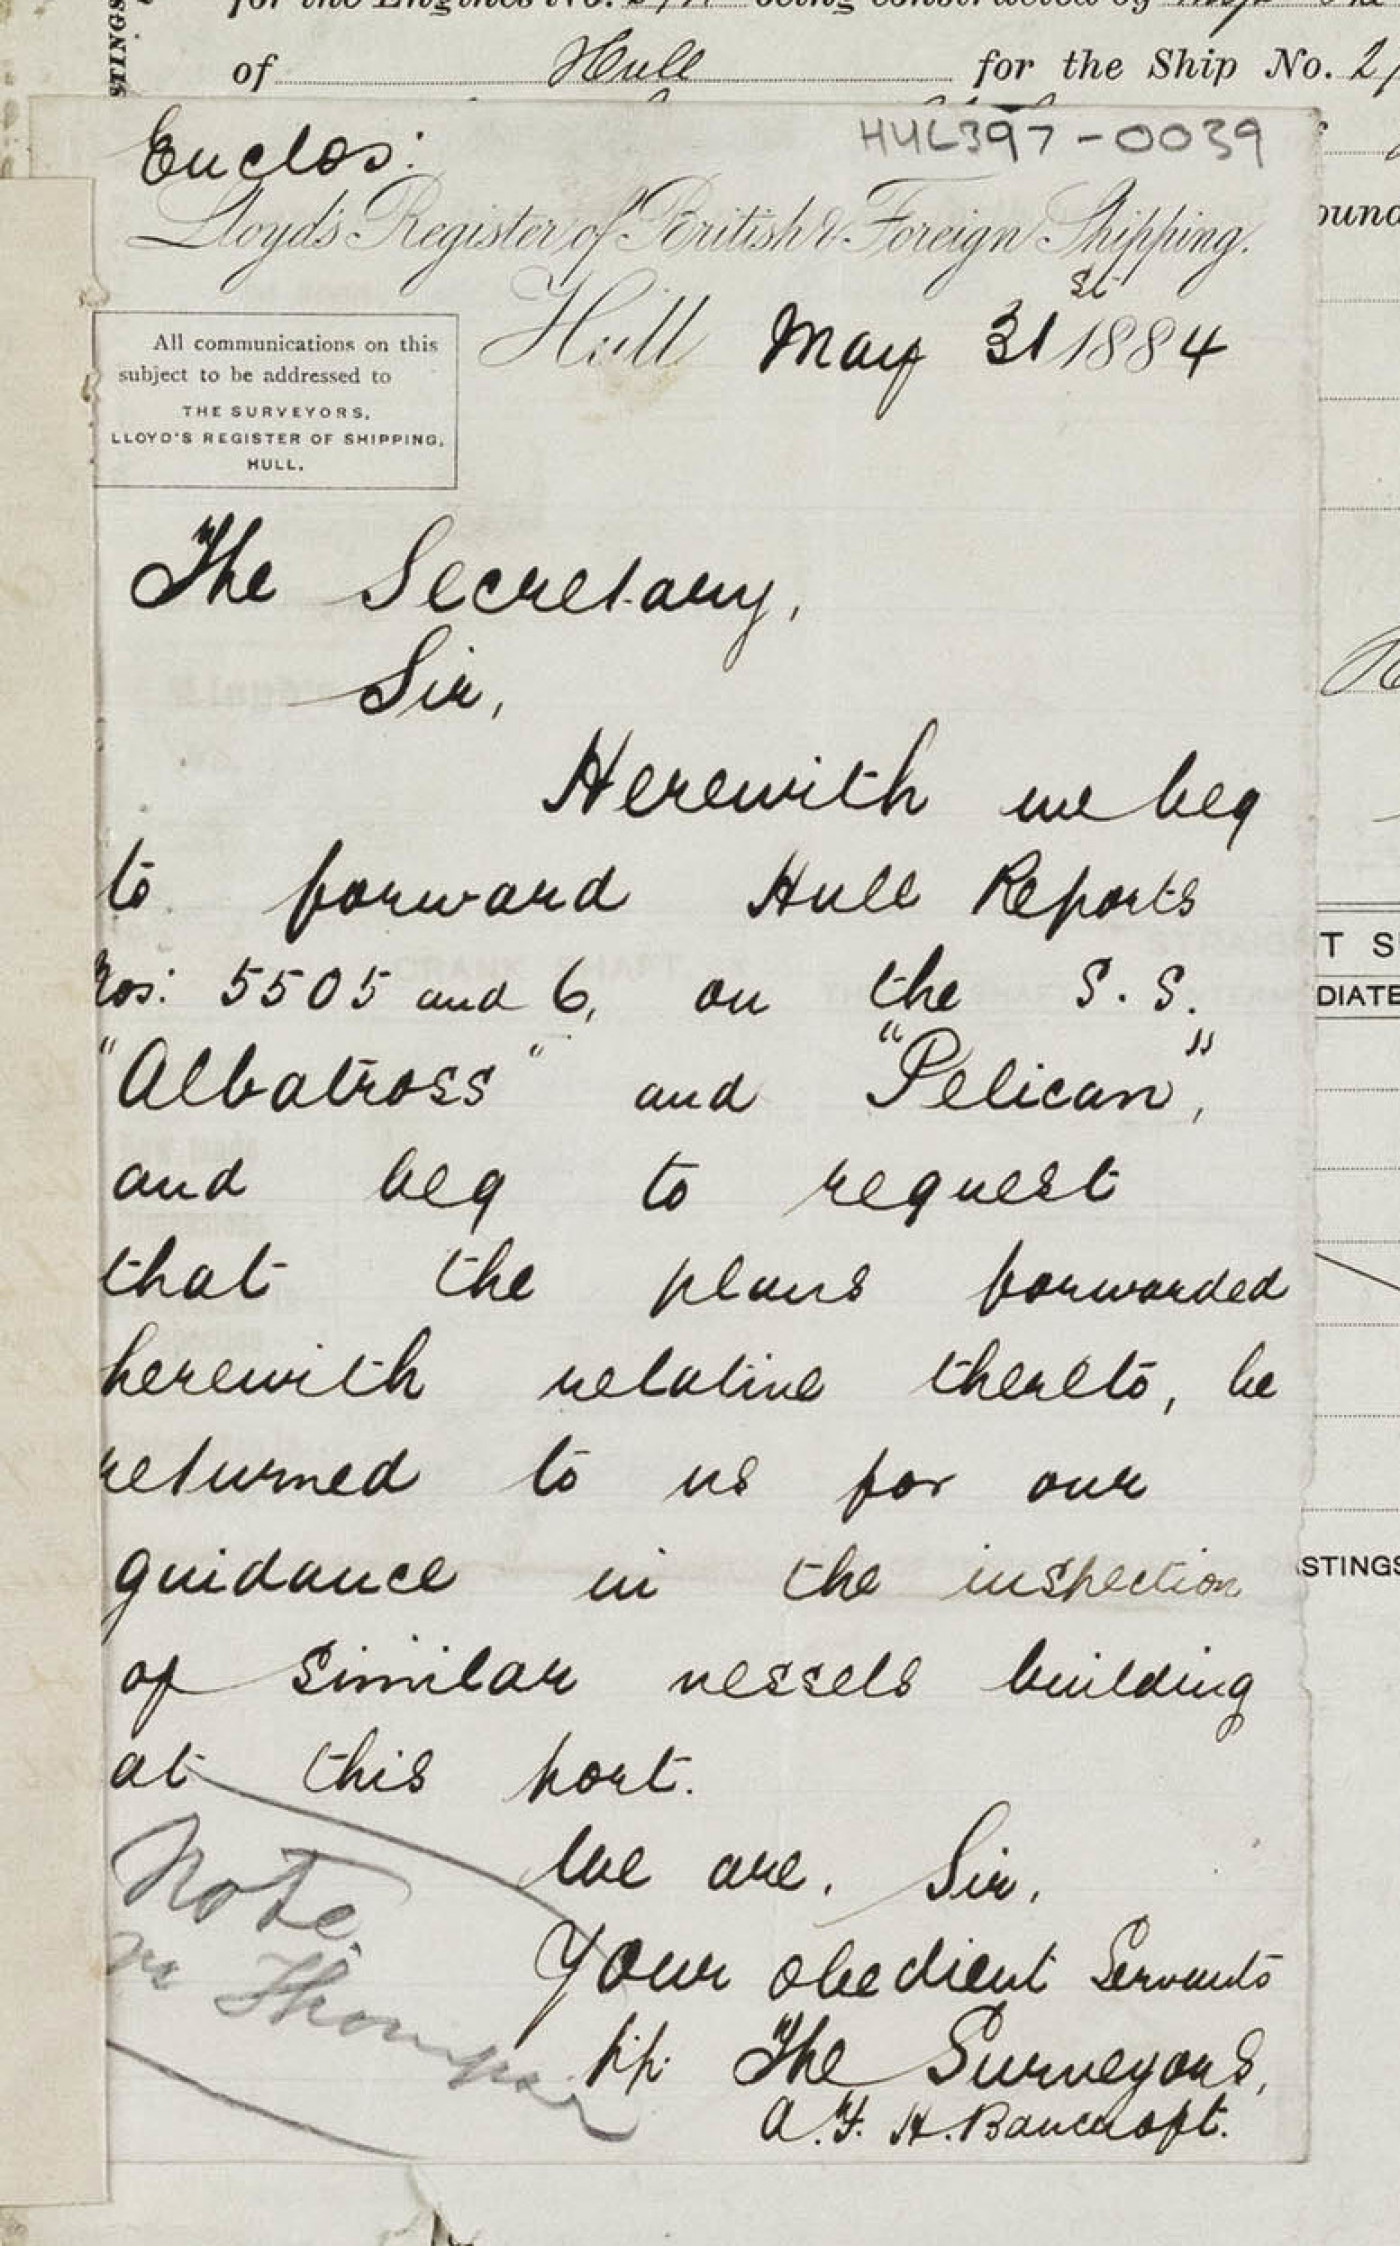 of Hull for the Ship No. 2
Enclos:
HUL397-0039
Lloyd's Register of British & Foreign Shipping.
Hull May 31st 1884
All communications on this
subject to be addressed to
THE SURVEYORS,
LLOYD'S REGISTER OF SHIPPING,
HULL.
The Secretary,
Sir,
Herewith we beg
to forward Hull Reports
Nos: 5505 and 6, on the S.S.
"Albatross" and "Pelican",
and beg to request
that the plans forwarded
herewith relative thereto, be
returned to us for our
guidance in the inspection
of similar vessels building
at this port.
We are, Sir,
Your obedient Servants
p.p. The Surveyors,
A. F. H. Bancroft.
Note.
Mr Thompson
T S
DIATE
STINGS